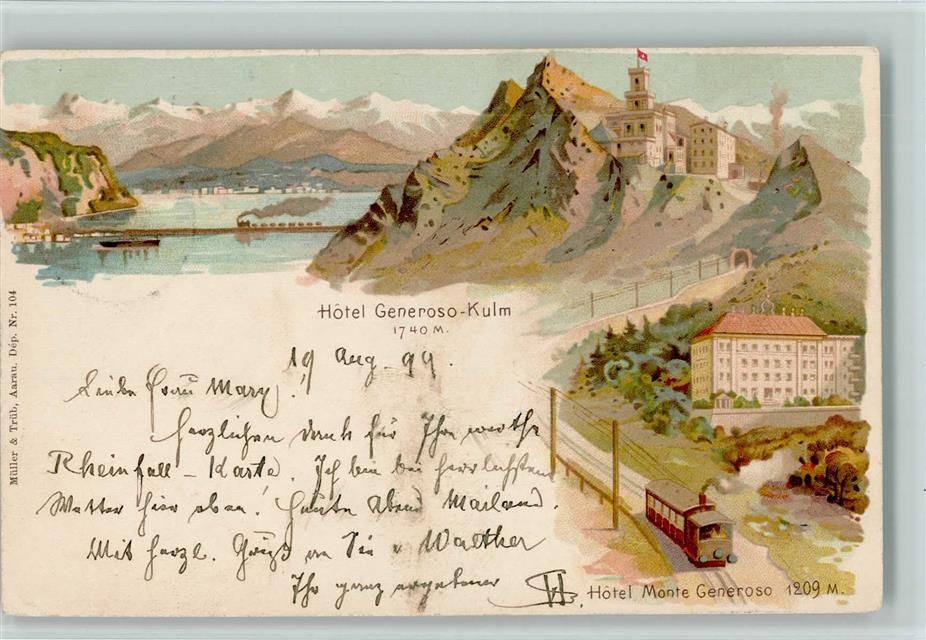 Hôtel Generoso-Kulm
1740 M.
19 Aug. 99.
Liebe Frau Mary!
Herzlichen Dank für Ihre werthe
Rheinfall-Karte. Ich bin bei herrlichstem
Wetter hier oben. Heute Abend Mailand.
Mit herzl. Gruß an Sie u Walther
Ihr ganz ergebener
Hôtel Monte Generoso 1209 M.
Müller & Trüb, Aarau. Dép. Nr. 104